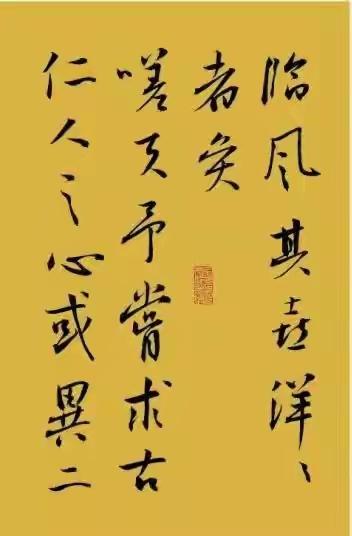 临风其喜洋〻
者矣
嗟夫予嘗求古
仁人之心或異二